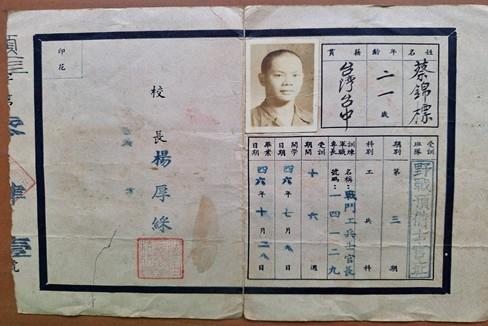 姓名
蔡錦標
年齡
二一歲
籍貫
台灣台中
受訓班隊
野戰預備士官班
期別
第三期
科別
工兵科
訓練軍職專長
名稱：戰鬥工兵士官長
號碼：一四一二九
受訓期間
十六週
開學日期
四六年七月九日
畢業日期
四六年十月二八日
校長楊厚綵
印花